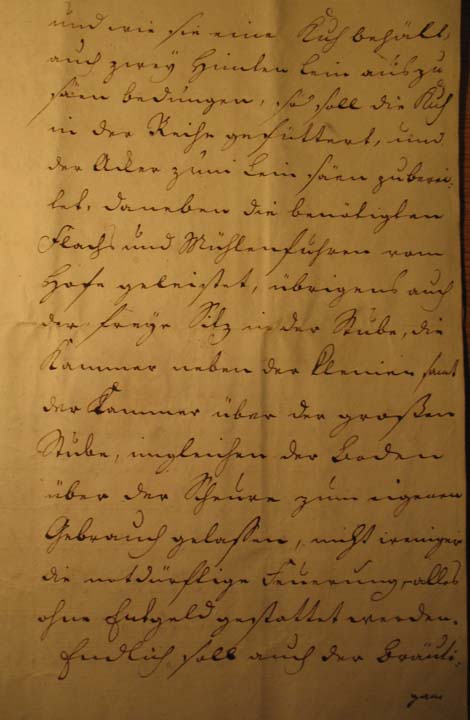 und wie sie eine Kuh behält,
auch zwey Himten Lein auszu
säen bedungen, so soll die Kuh
in der Reihe gefüttert, und
der Acker zum Lein säen zuberei-
tet, daneben die benötigten
Flachs und Mühlenfuhren vom
Hofe geleistet, übrigens auch
der freye Sitz in der Stube, die
Kammer neben der kleinen samt
der Kammer über der großen
Stube, imgleichen der Boden
über der Scheure zum eigenen
Gebrauch gelassen, nicht weniger
die notdürftige Feuerung, alles
ohne Entgeld gestattet werden.
Endlich soll auch der Bräuti-
gam